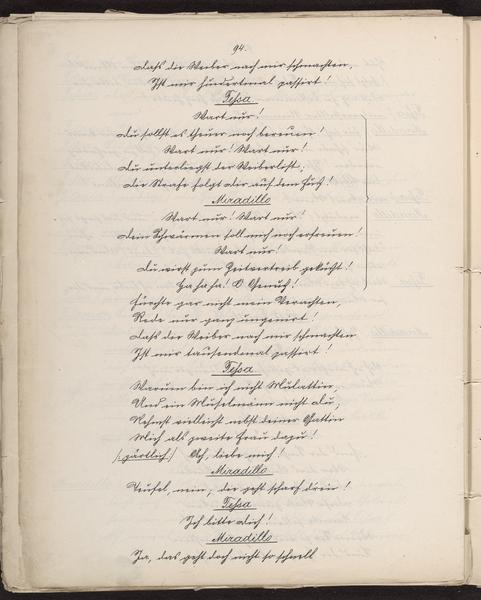 94.
Daß die Weiber nach mir schmachten,
Ist mir hundertmal passirt!
Tessa
Wart nur!
Du sollst es theuer noch bereuen!
Wart nur! Wart nur!
Du unterliegst der Weiberlist;
Die Strafe folgt dir auf dem Fuß!
Miradillo
Wart nur! Wart nur!
Dein Schwärmen soll mich noch erfreuen!
Wart nur!
Du wirst zum Zeitvertreib geküßt!
Ha ha ha! O Genuß!
Fürchte gar nicht mein Verachten,
Rede nur ganz ungenirt!
Daß die Weiber nach mir schmachten
Ist mir tausendmal passirt!
Tessa
Warum bin ich nicht Mulattin,
Und ein Muselmann nicht du;
Nehmst vielleicht nebst deiner Gattin
Mich als zweite Frau dazu!
/: zärtlich :/ Ach, liebe mich!
Miradillo
Teufel, nein, die geht scharf drein!
Tessa
Ich bitte dich!
Miradillo
Ja, das geht doch nicht so schnell